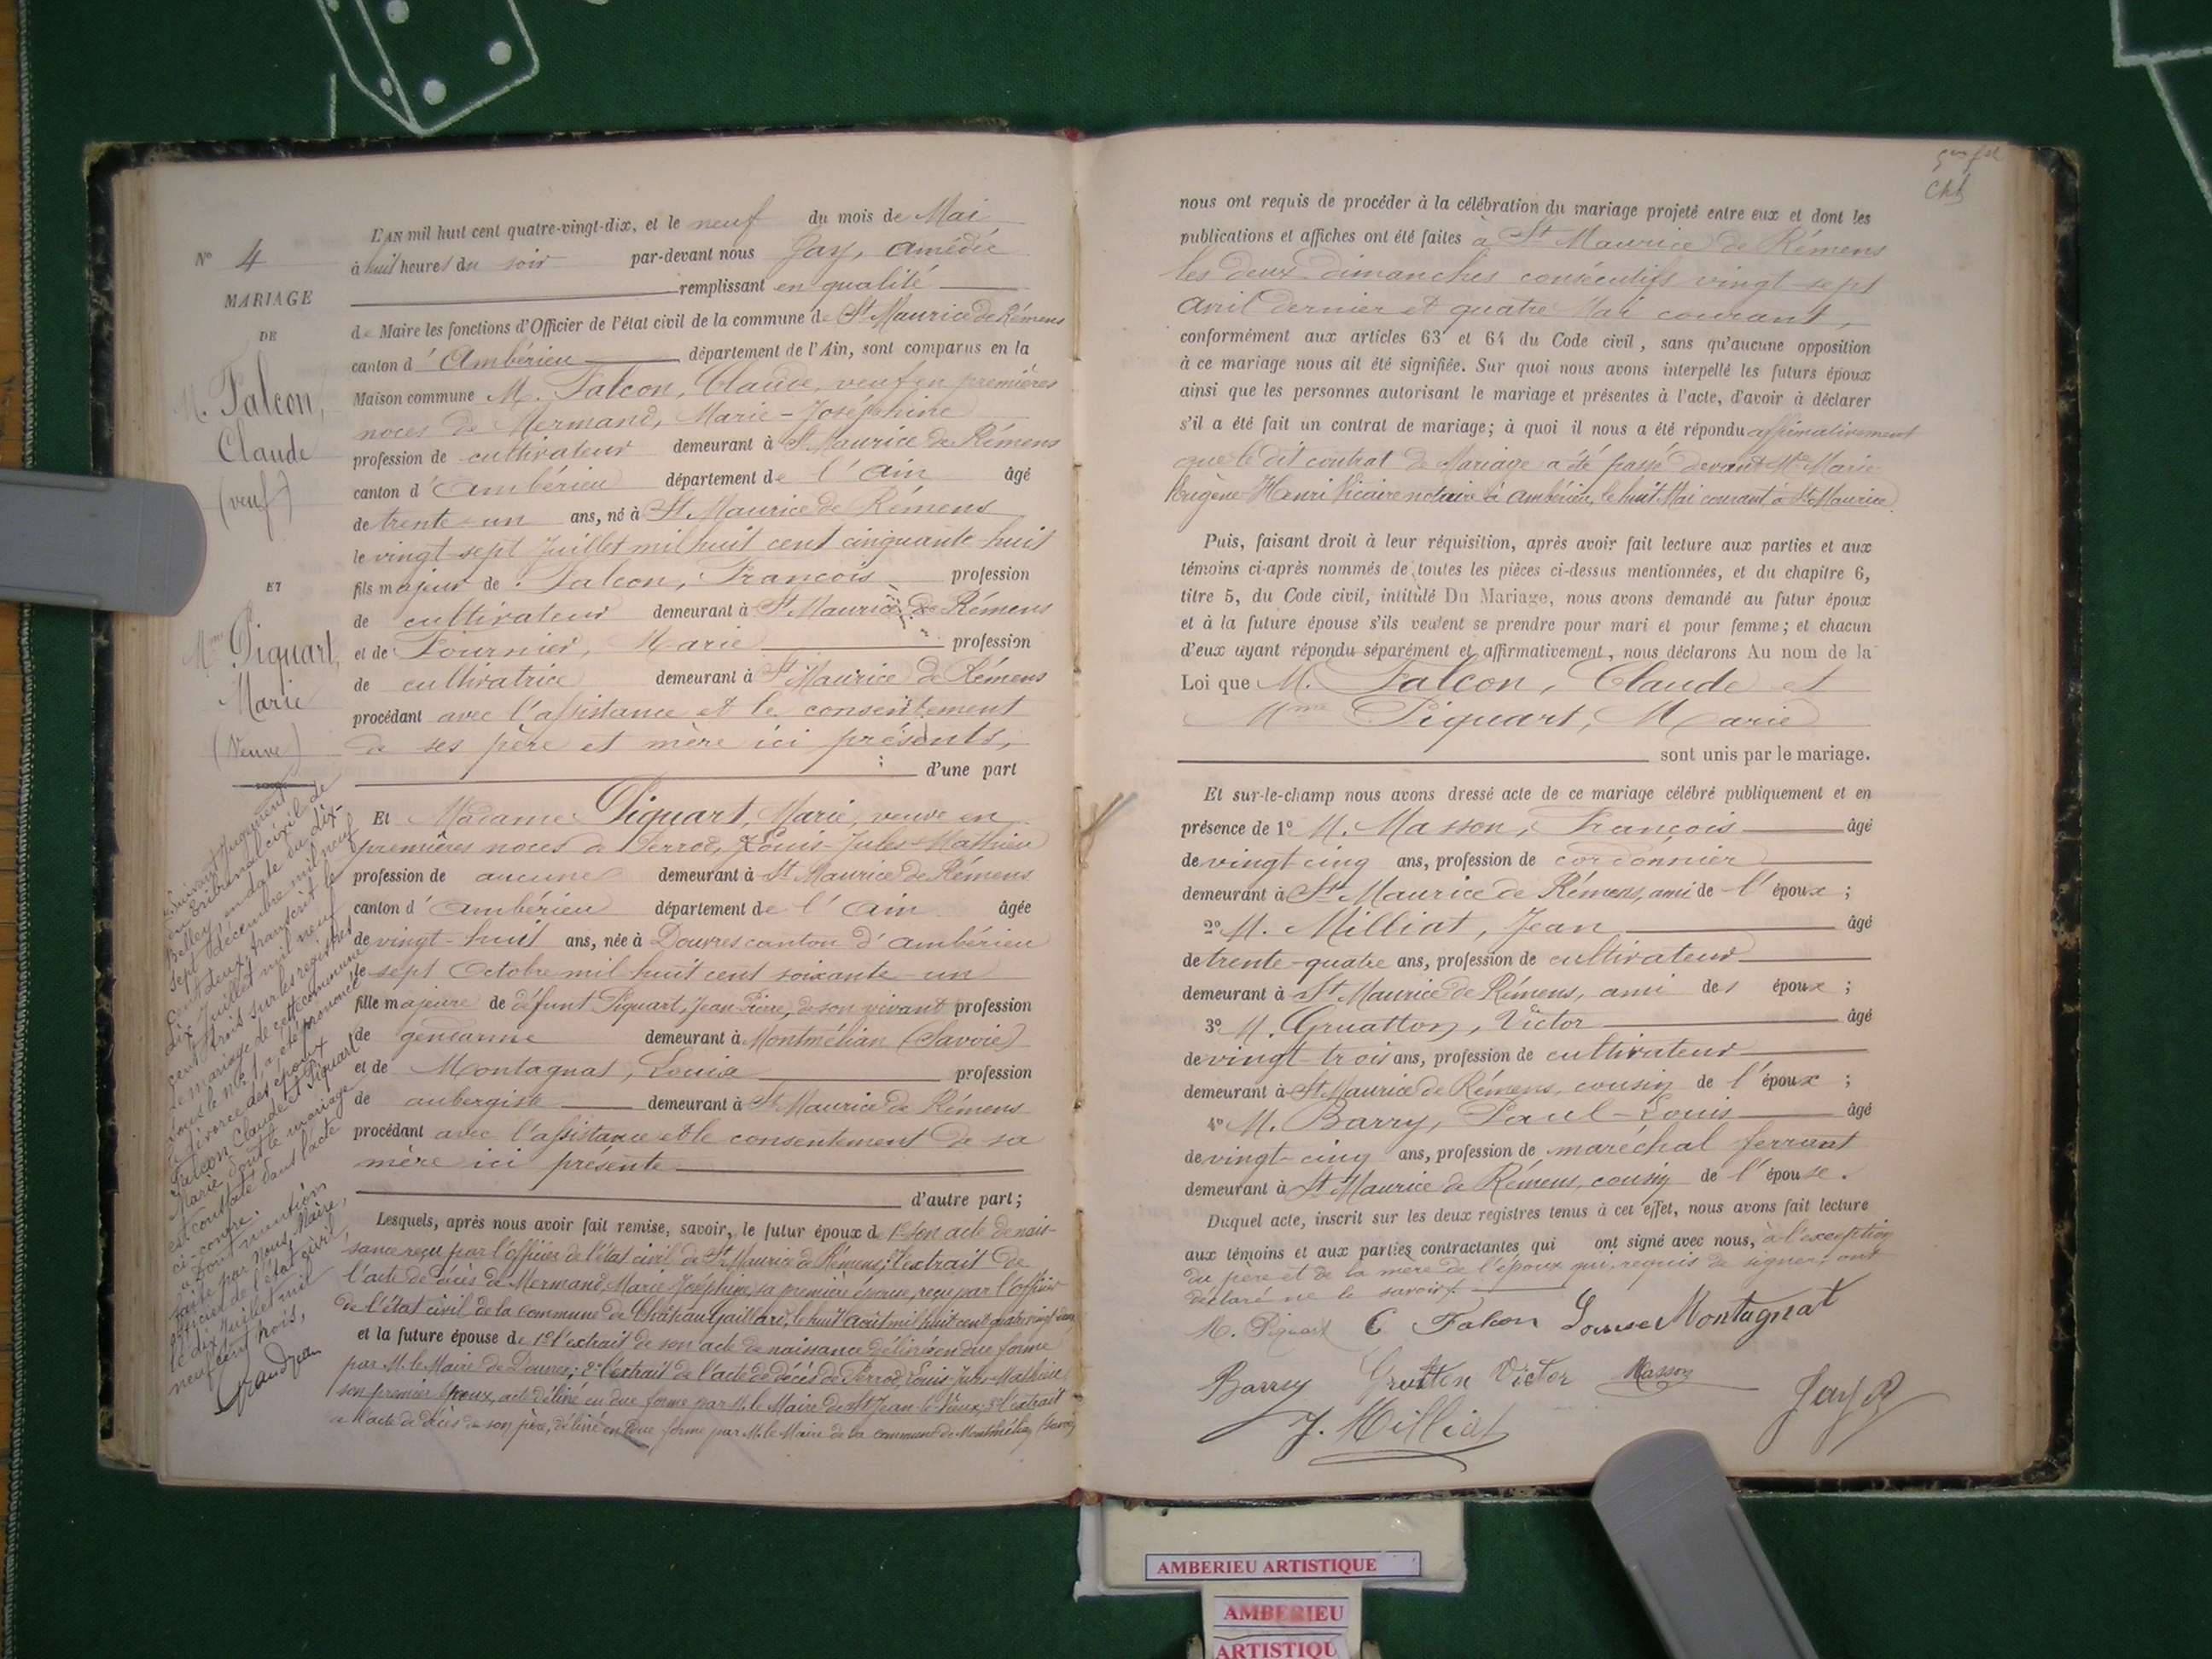 N° 4
MARIAGE
DE
M. Falcon,
Claude
(veuf)
ET
Mme Piquart,
Marie
(Veuve)
Suivant jugement
du tribunal civil de
Belley en date du dix-
sept décembre mil neuf
cent deux, transcrit le
dix Juillet mil neuf
cent trois sur les registres
de mariage de cette commune
sous le n° 1, a été prononcé
le divorce des époux
Falcon Claude et Piquart
Marie dont le mariage
est constaté dans l'acte
ci-contre.
Dont mention
faite par Nous, Maire,
officier de l'état civil
le dix Juillet mil
neuf cent trois,
Grandjean
L'AN mil huit cent quatre-vingt-dix, et le neuf du mois de Mai
à huit heures du soir par-devant nous Jay, Amédée
remplissant en qualité
de Maire les fonctions d'Officier de l'état civil de la commune de St Maurice de Rémens
canton d'Ambérieu département de l'Ain, sont comparus en la
Maison commune M. Falcon, Claude, veuf en premières
noces de Mermand, Marie-Joséphine
profession de cultivateur demeurant à St Maurice de Rémens
canton d'Ambérieu département de l'Ain âgé
de trente-un ans, né à St Maurice de Rémens
le vingt-sept Juillet mil huit cent cinquante-huit
fils majeur de Falcon, François profession
de cultivateur demeurant à St Maurice de Rémens
et de Fournier, Marie profession
de cultivatrice demeurant à St Maurice de Rémens
procédant avec l'assistance et le consentement
de ses père et mère ici présents,
d'une part
Et Madame Piquart, Marie, veuve en
premières noces de Perrod, Louis-Jules-Mathieu
profession de aucune demeurant à St Maurice de Rémens
canton d'Ambérieu département de l'Ain âgée
de vingt-huit ans, née à Douvres canton d'Ambérieu
le sept Octobre mil huit cent soixante-un
fille majeure de défunt Piquart, Jean Pierre, de son vivant profession
de gendarme demeurant à Montmélian (Savoie)
et de Montagnat, Louise profession
de aubergiste demeurant à St Maurice de Rémens
procédant avec l'assistance et le consentement de sa
mère ici présente
d'autre part;
Lesquels, après nous avoir fait remise, savoir, le futur époux de 1° son acte de nais-
sance reçu par l'officier de l'état civil de St Maurice de Rémens; 2° l'extrait de
l'acte de décès de Mermand, Marie Joséphine, sa première épouse, reçu par l'officier
de l'état civil de la commune de Château Gaillard, le huit Août mil huit cent quatre vingt
et la future épouse de 1° l'extrait de son acte de naissance délivré en due forme
par M. le Maire de Douvres; 2° l'extrait de l'acte de décès de Perrod, Louis Jules-Mathieu,
son premier époux, acte délivré en due forme par M. le Maire de St Jean-le-Vieux; 3° l'extrait
de l'acte de décès de son père, délivré en due forme par M. le Maire de la commune de Montmélian (Savoie)
nous ont requis de procéder à la célébration du mariage projeté entre eux et dont les
publications et affiches ont été faites à St Maurice de Rémens
les deux dimanches consécutifs vingt-sept
Avril dernier et quatre Mai courant,
conformément aux articles 63 et 64 du Code civil, sans qu'aucune opposition
à ce mariage nous ait été signifiée. Sur quoi nous avons interpellé les futurs époux
ainsi que les personnes autorisant le mariage et présentes à l'acte, d'avoir à déclarer
s'il a été fait un contrat de mariage; à quoi il nous a été répondu affirmativement
que le dit contrat de Mariage a été passé devant Me Marie
Eugène Henri Vicaire notaire à Ambérieu, le huit Mai courant à St Maurice
Puis, faisant droit à leur réquisition, après avoir fait lecture aux parties et aux
témoins ci-après nommés de toutes les pièces ci-dessus mentionnées, et du chapitre 6,
titre 5, du Code civil, intitulé Du Mariage, nous avons demandé au futur époux
et à la future épouse s'ils veulent se prendre pour mari et pour femme; et chacun
d'eux ayant répondu séparément et affirmativement, nous déclarons Au nom de la
Loi que M. Falcon, Claude et
Mme Piquart, Marie
sont unis par le mariage.
Et sur-le-champ nous avons dressé acte de ce mariage célébré publiquement et en
présence de 1° M. Masson, François âgé
de vingt-cinq ans, profession de cordonnier
demeurant à St Maurice de Rémens, ami de l'époux;
2° M. Milliat, Jean âgé
de trente-quatre ans, profession de cultivateur
demeurant à St Maurice de Rémens, ami des époux;
3° M. Gruatton, Victor âgé
de vingt-trois ans, profession de cultivateur
demeurant à St Maurice de Rémens, cousin de l'époux;
4° M. Barry, Paul-Louis âgé
de vingt-cinq ans, profession de maréchal ferrant
demeurant à St Maurice de Rémens, cousin de l'épouse.
Duquel acte, inscrit sur les deux registres tenus à cet effet, nous avons fait lecture
aux témoins et aux parties contractantes qui ont signé avec nous, à l'exception
du père et de la mère de l'époux qui, requis de signer, ont
déclaré ne le savoir.
M. Piquart C Falcon Louise Montagnat
Barry Gruatton Victor Masson
J. Milliat Jay A
AMBERIEU ARTISTIQUE
AMBERIEU
ARTISTIQU